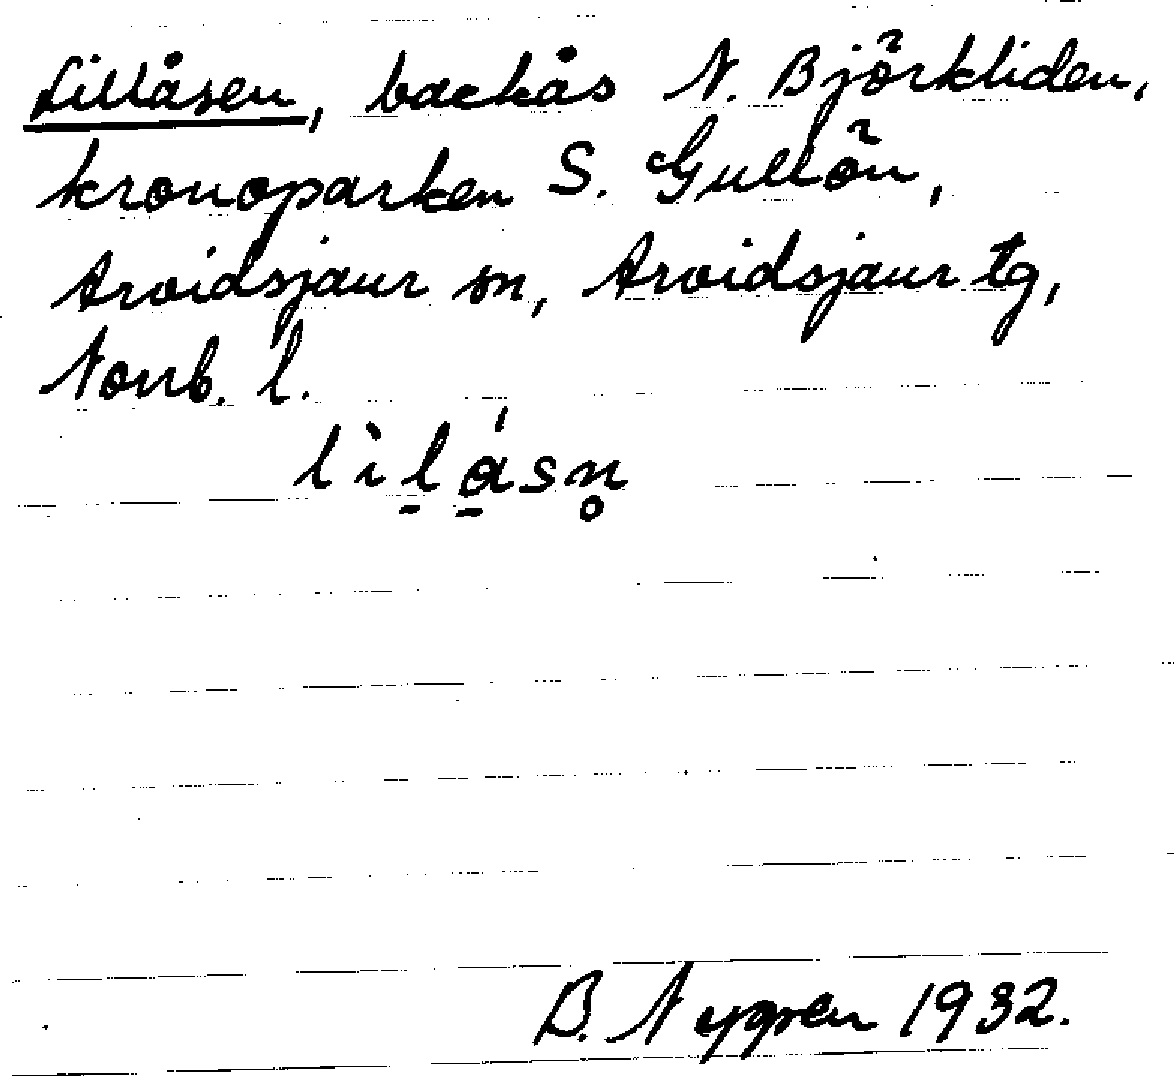 Lillåsen, backås N. Björkliden,
kronoparken S. Gullön,
Arvidsjaur sn, Arvidsjaur tg,
Norrb. l.
lìlạ́sn̥
B. Nygren 1932.